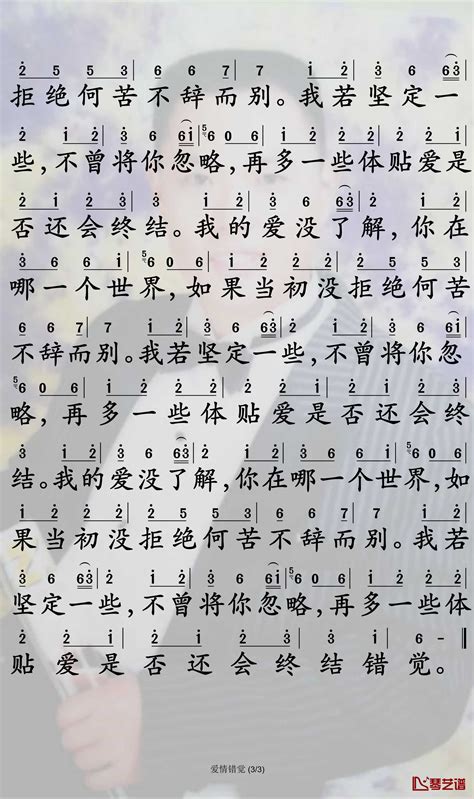 2 5 5 3 | 6 6 7 | 7 i 2 | 3 6 63 |
拒绝何苦不辞而别。我若坚定一
2 i 2 | 3 6 6i | 5 6 0 6 | i 2 2 2 2 |
些,不曾将你忽略,再多一些体贴爱是
2 i 2 2 | 3 i 2 | 3 6 63 | 2 i 2 |
否还会终结。我的爱没了解,你在
3 6 6 i | 5 6 0 6 | i 2 2 2 | 2 5 5 3 |
哪一个世界,如果当初没拒绝何苦
6 6 7 | 7 i 2 | 3 6 63 | 2 i 2 | 3 6 6i |
不辞而别。我若坚定一些,不曾将你忽
5 6 0 6 | i 2 2 2 2 | 2 i 2 2 |
略,再多一些体贴爱是否还会终
3 i 2 | 3 6 63 | 2 i 2 | 3 6 6 i | 5 6 0 6 |
结。我的爱没了解,你在哪一个世界,如
i 2 2 2 | 2 5 5 3 | 6 6 7 | 7 i 2 |
果当初没拒绝何苦不辞而别。我若
3 6 63 | 2 i 2 | 3 6 6i | 5 6 0 6 | i 2 2 2
坚定一些,不曾将你忽略,再多一些体
2 2 | 2 i | 2 2 | 3 i | 6 - ‖
贴爱是否还会终结错觉。
爱情错觉 (3/3)
琴艺谱